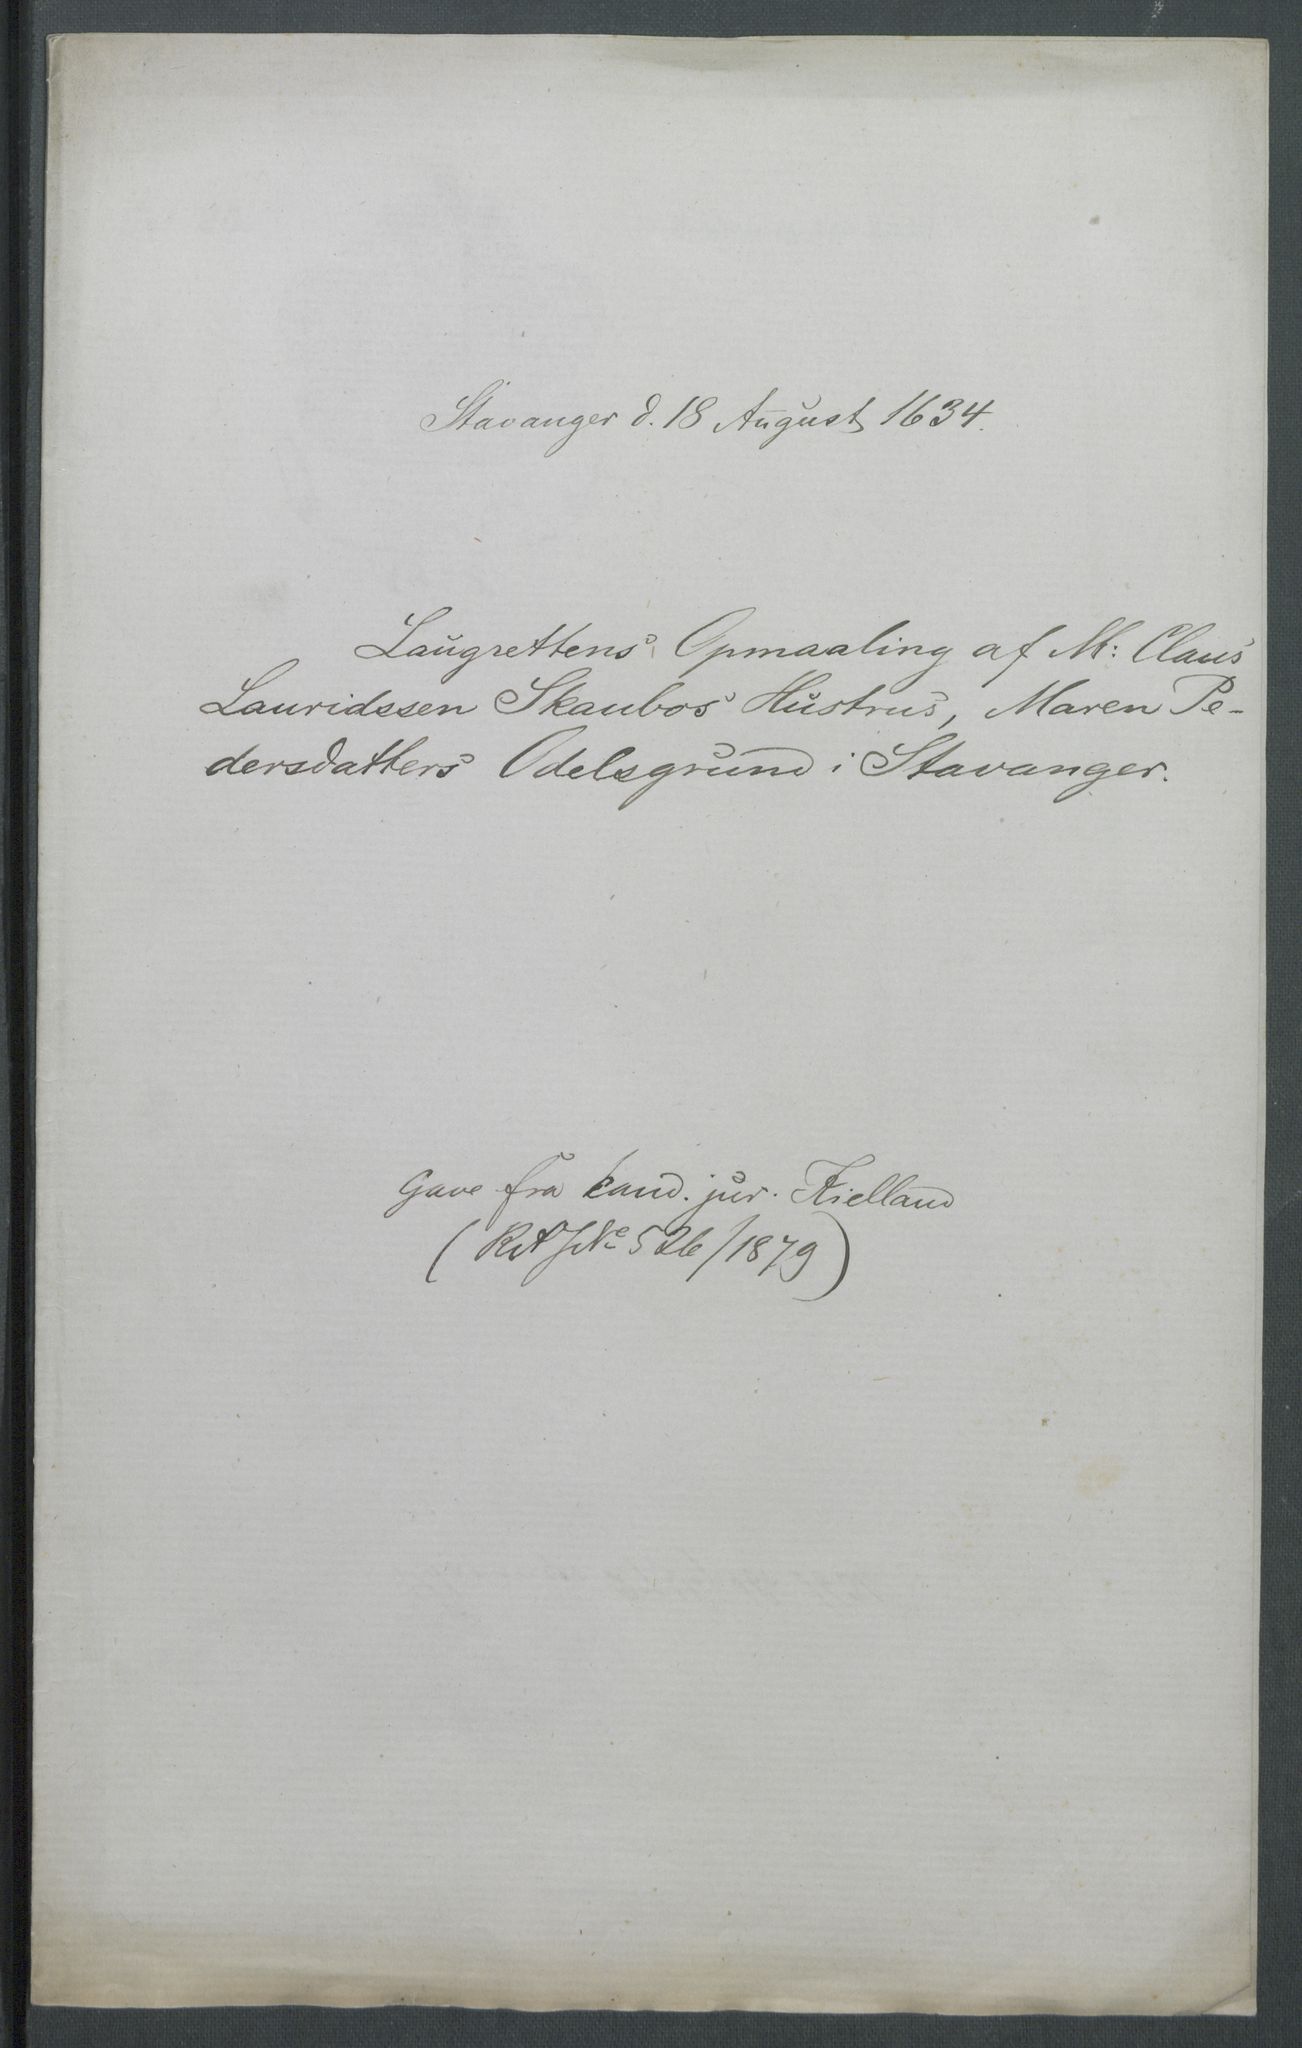 Stavanger d. 18 August 1634.
Laugrettens Opmaaling af M: Claus
Lauridssen Skaubos Hustrus, Maren Pe-
dersdatters Odelsgrund i Stavanger.
Gave fra kand. jur. Kielland
(RA JNo 526/1879)